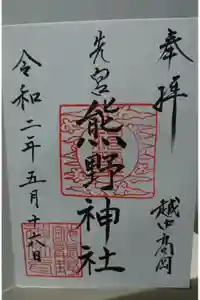 奉拝
越中高岡
先宮
熊野神社
令和二年五月十六日